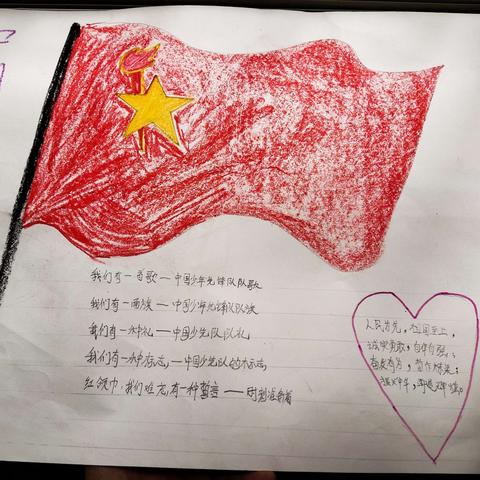 我们有一首歌——中国少年先锋队队歌
我们有一面旗——中国少年先锋队队旗
我们有一种礼——中国少先队队礼
我们有一种标志,——中国少先队的标志,
红领巾,我们呼, 有一种誓言——时刻准备着
人民为先,祖国至上,
诚实勇敢,自律自强,
奋发有为,